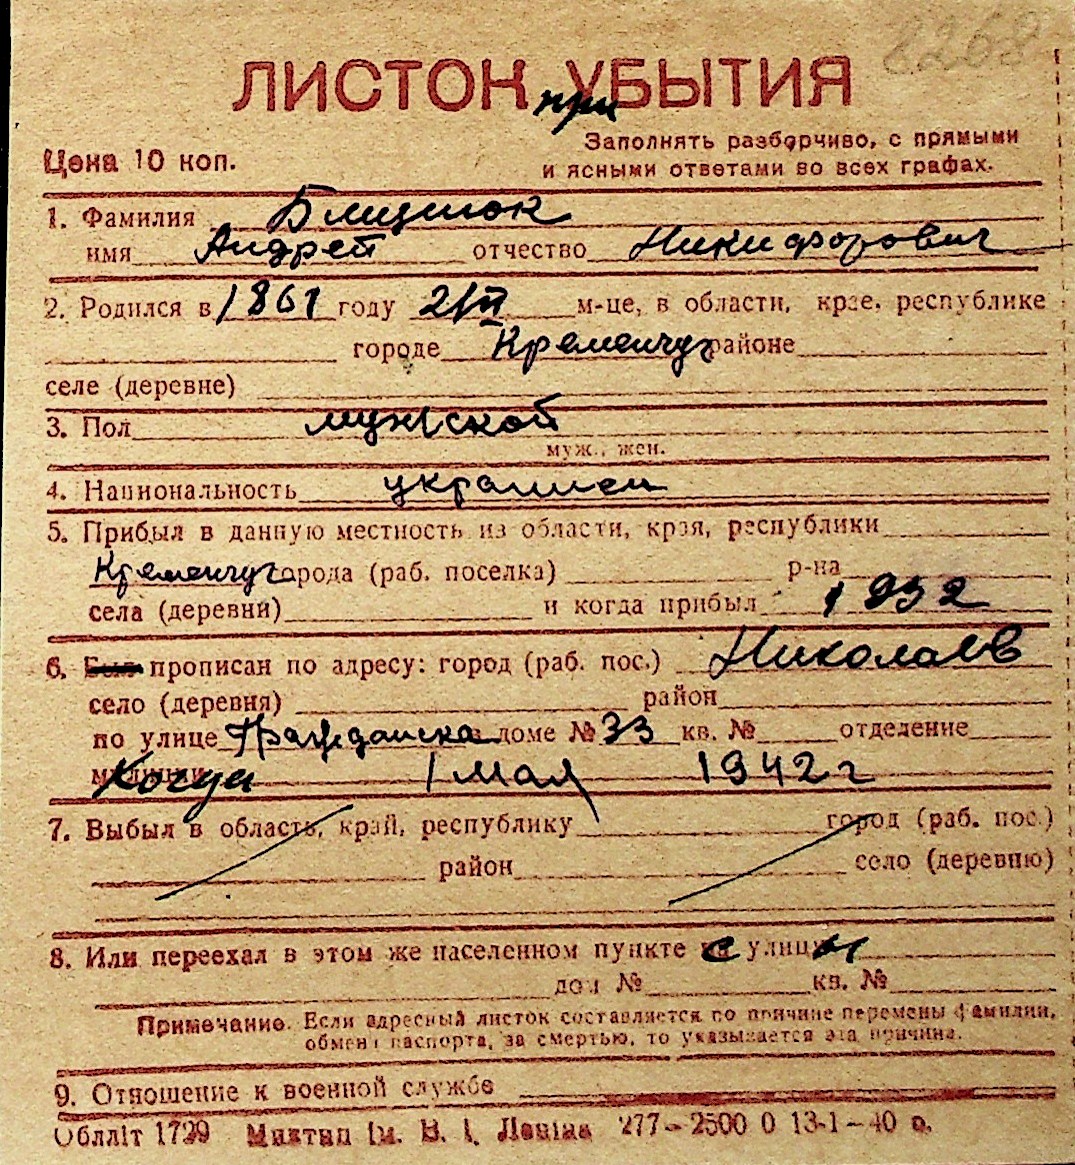 8268
ЛИСТОК УБЫТИЯ
при
Цена 10 коп.
Заполнять разборчиво, с прямыми
и ясными ответами во всех графах.
1. Фамилия
имя Андрей отчество Никифорович
2. Родился в 1861 году 2/III м-це, в области, крае, республике
городе Кременчуг районе
селе (деревне)
3. Пол мужской
муж., жен.
4. Национальность украинец
5. Прибыл в данную местность из области, края, республики
Кременчуг города (раб. поселка) р-на
села (деревни) и когда прибыл 1932
6. Был прописан по адресу: город (раб. пос.) Николаев
село (деревня) район
по улице Гражданска в доме № 33 кв. № отделение
милиции Когда 1 мая 1942 г
7. Выбыл в область, край, республику город (раб. пос.)
район село (деревню)
8. Или переехал в этом же населенном пункте с улицы
дом № кв. №
Примечание. Если адресный листок составляется по причине перемены фамилии,
обмена паспорта, за смертью, то указывается эта причина.
9. Отношение к военной службе
Облліт 1729 Миктип ім. В. І. Леніна 277–2500 0 13-1–40 р.